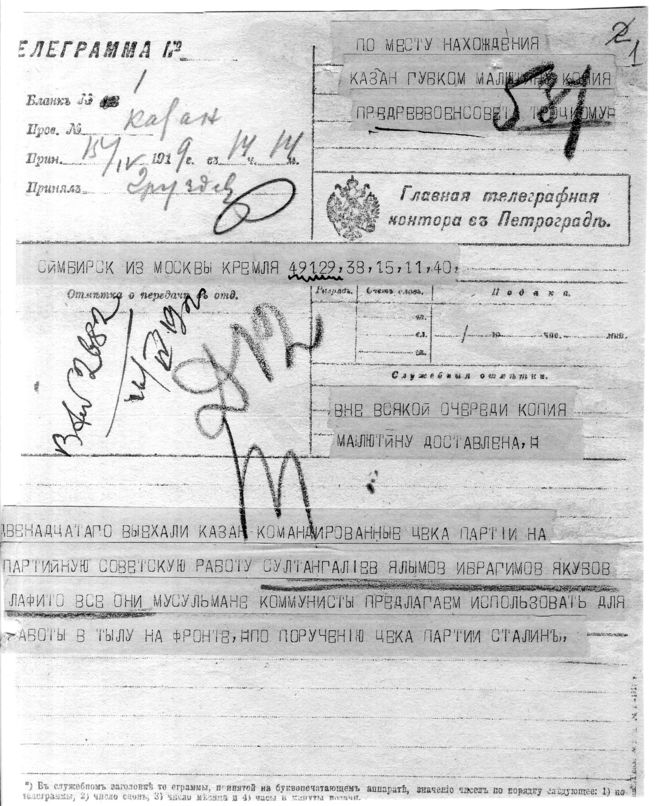 ЕЛЕГРАММА №
2
1
ПО МЕСТУ НАХОЖДЕНИЯ
КАЗАН ГУБКОМ МАЛЮТИНУ КОПИЯ
ПРЕДРЕВВОЕНСОВЕТА ТРОЦКОМУ
Бланкъ №
Пров. № казан
Прин. 15/IV 1919 г. въ 14 ч. 14 м.
Принялъ Груздев
Главная телеграфная
контора въ Петроградѣ.
СИМБИРСК ИЗ МОСКВЫ КРЕМЛЯ 49129,38,15,11,40,
Отмѣтка о передачѣ въ отд.
Разрядъ. Счетъ словъ. Подача.
гл.
сл. 10 час. мин.
сл.
Служебныя отмѣтки.
ВНЕ ВСЯКОЙ ОЧЕРЕДИ КОПИЯ
МАЛЮТИНУ ДОСТАВЛЕНА,
ДВЕНАДЧАТАГО ВЫЕХАЛИ КАЗАН КОМАНДИРОВАННЫЕ ЧЕКА ПАРТIИ НА
ПАРТИЙНУЮ СОВЕТСКУЮ РАБОТУ СУЛТАНГАЛIЕВ ЯЛЫМОВ ИБРАГИМОВ ЯКУБОВ
ЛАФИТО ВСЕ ОНИ МУСУЛЬМАНЕ КОММУНИСТЫ ПРЕДЛАГАЕМ ИСПОЛЬЗОВАТЬ ДЛЯ
РАБОТЫ В ТЫЛУ НА ФРОНТЕ, НПО ПОРУЧЕНIЮ ЧЕКА ПАРТИИ СТАЛИНЪ,
*) Въ служебномъ заголовкѣ те еграммы, принятой на буквопечатающемъ аппаратѣ, значенiе чиселъ по порядку слѣдующее: 1) но
телеграммы, 2) число словъ, 3) число мѣсяца и 4) часы и минуты подачи.